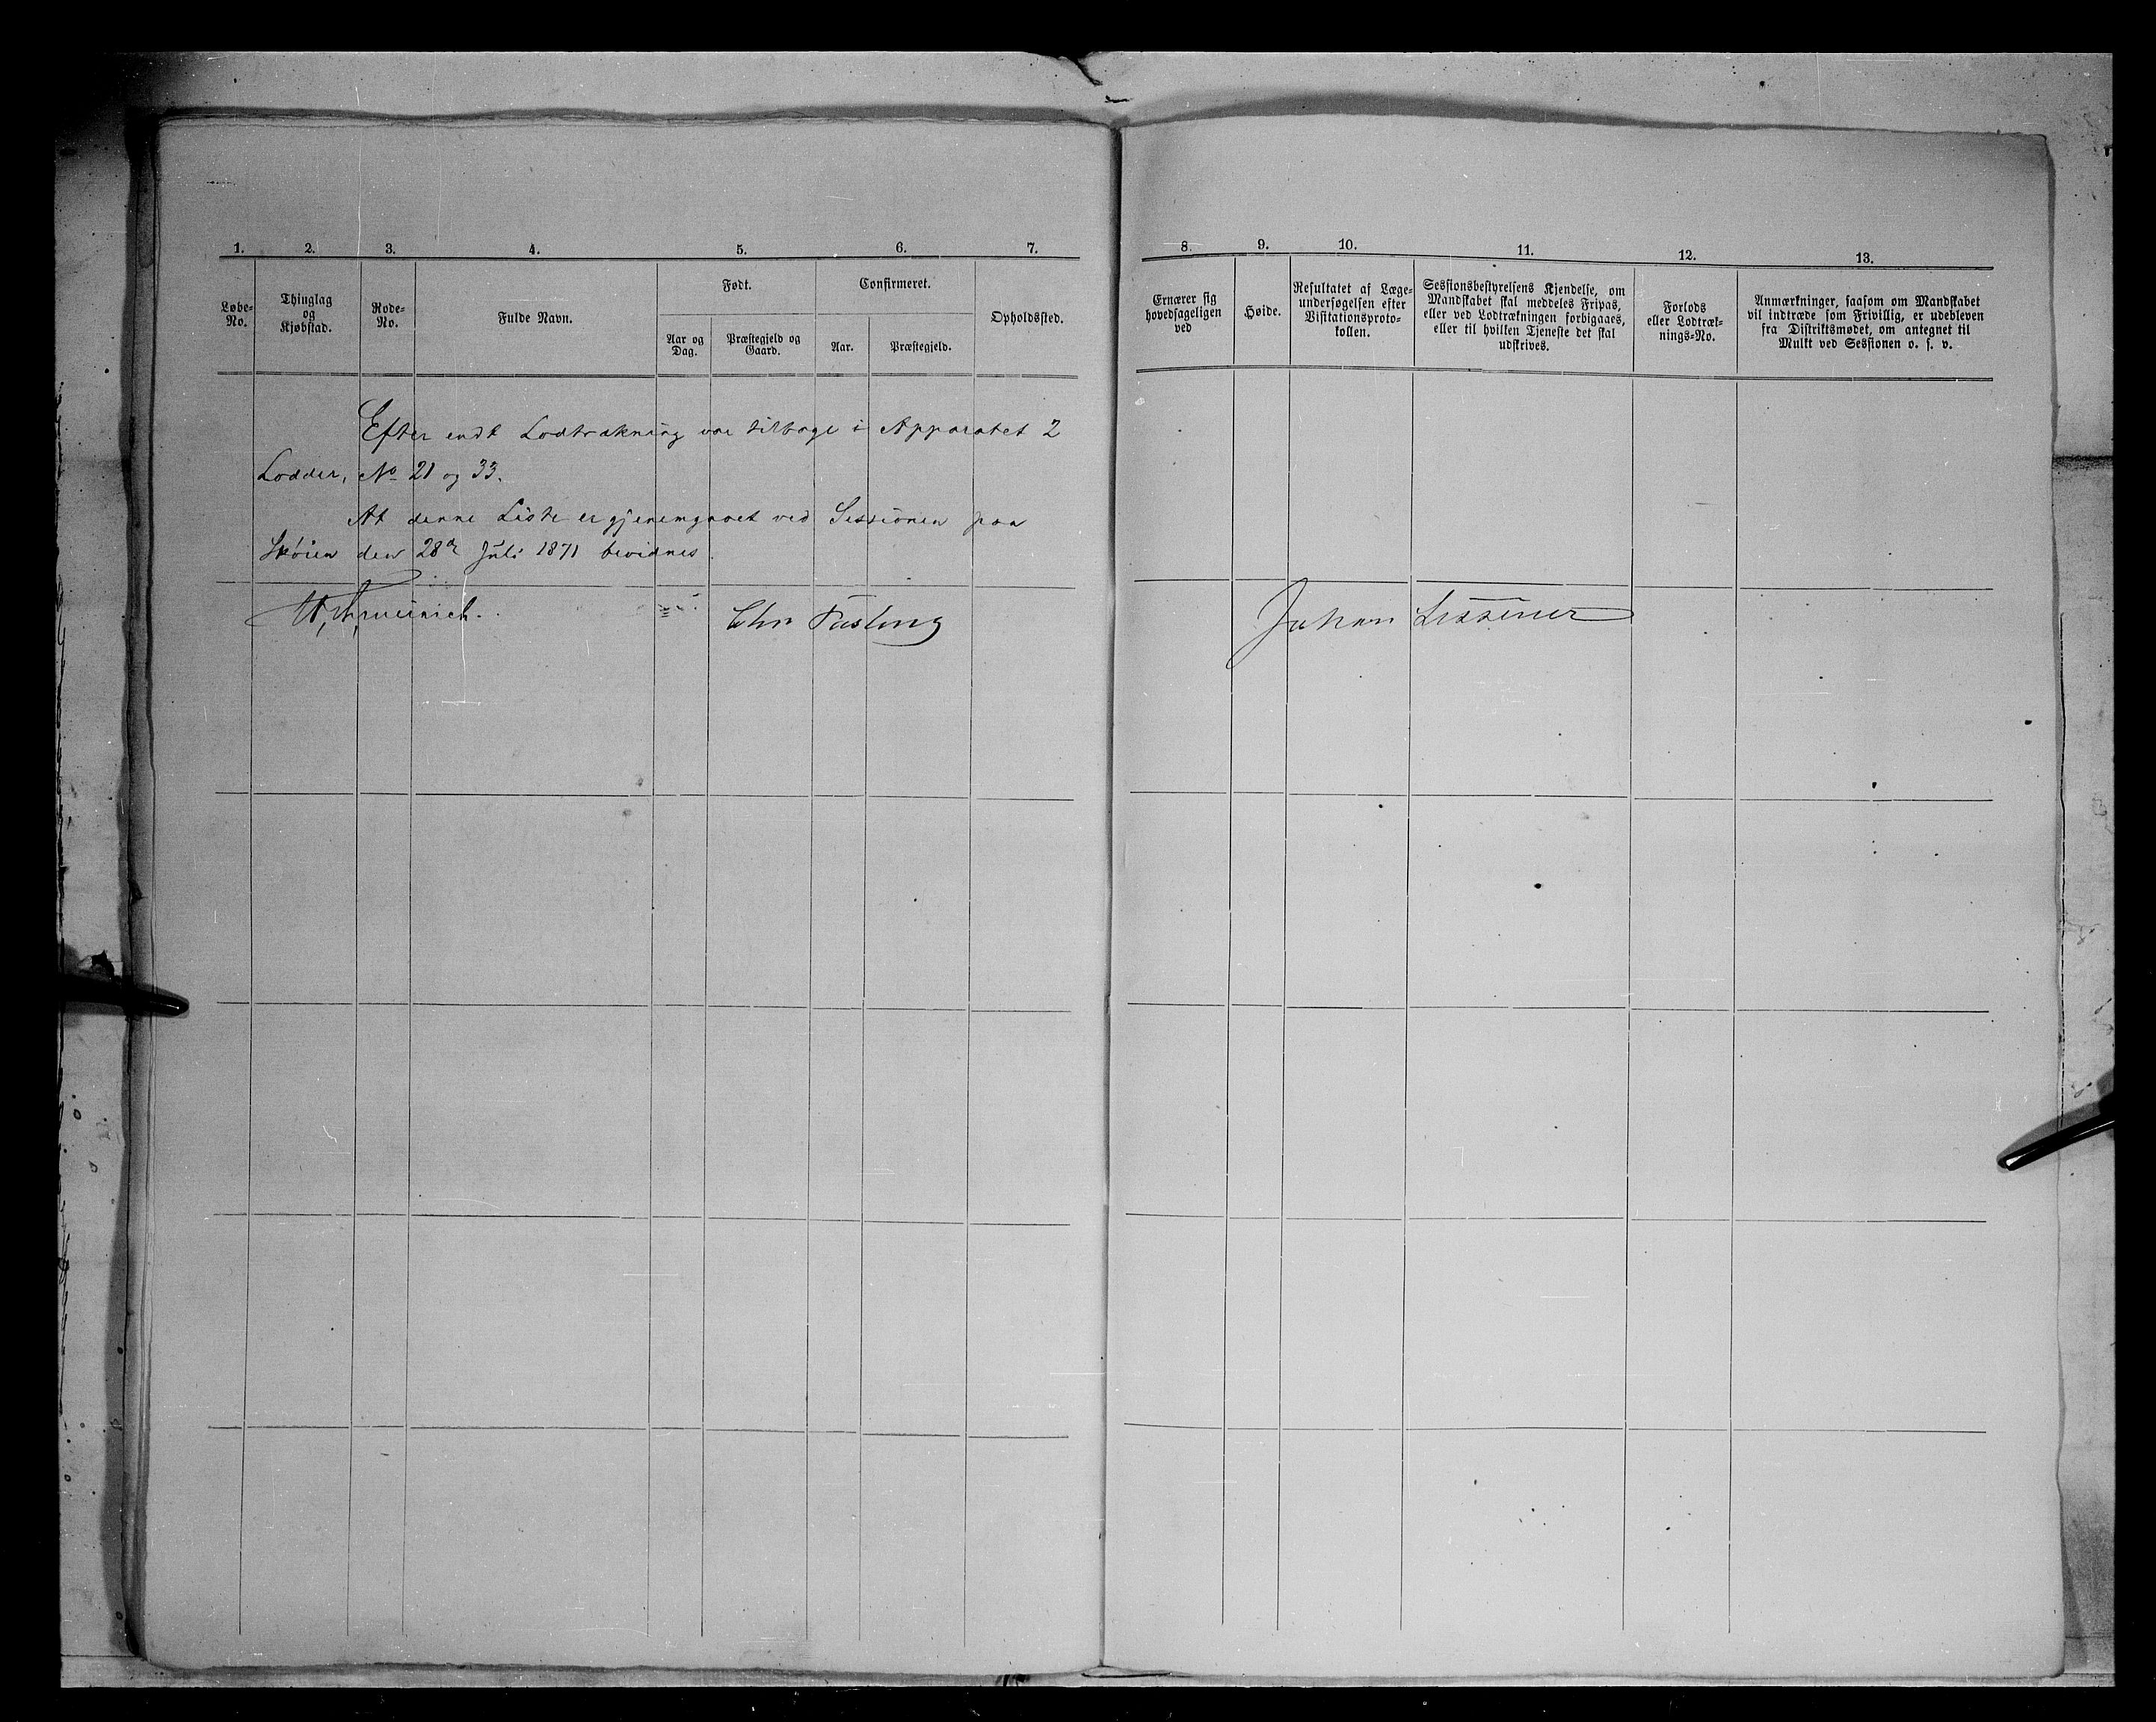 1. 2. 3. 4. 5. 6. 7.
Løbe-
No.
Thinglag
og
Kjøbstad.
Rode-
No.
Fulde Navn.
Født.
Aar og
Dag.
Præstegjeld og
Gaard.
Confirmeret.
Aar.
Præstegjeld.
Opholdssted.
Efter endt Lodtrækning var tilbage i Apparatet 2
Lodder, No 21 og 33.
At denne Liste er gjennemgaaet ved Sessionen paa
Skøien den 28de Juli 1871 bevidnes.
Chr Fasting
8. 9. 10. 11. 12. 13.
Ernærer sig
hovedsageligen
ved
Høide.
Resultatet af Læge-
undersøgelsen efter
Visitationsproto-
kollen.
Sessionsbestyrelsens Kjendelse, om
Mandskabet skal meddeles Fripas,
eller ved Lodtrækningen forbigaaes,
eller til hvilken Tjeneste det skal
udskrives.
Forlods
eller Lodtræk-
nings-No.
Anmærkninger, saasom om Mandskabet
vil indtræde som Frivillig, er udebleven
fra Distriktsmødet, om antegnet til
Mulkt ved Sessionen o. s. v.
Johan